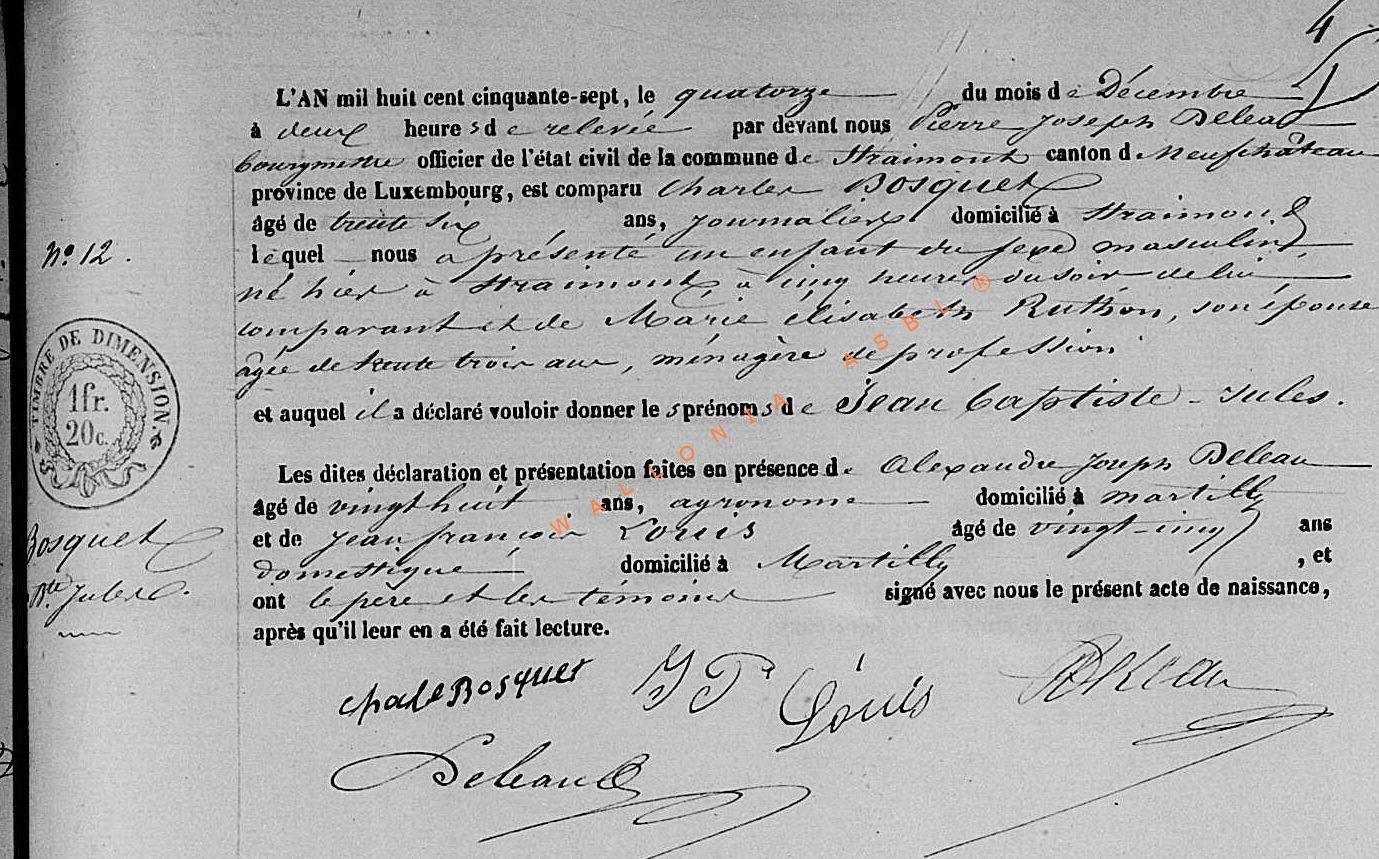 4
L'AN mil huit cent cinquante-sept, le quatorze du mois de Décembre
à deux heures de relevée par devant nous Pierre Joseph Deleau
bourgmestre officier de l'état civil de la commune de Straimont canton de Neufchâteau
province de Luxembourg, est comparu Charles Bosquet
âgé de trente six ans, journalier domicilié à Straimont
lequel nous a présenté un enfant du sexe masculin,
né hier à Straimont, à cinq heures du soir de lui
comparant et de Marie élisabeth Ruthon, son épouse
âgée de trente trois ans, ménagère de profession
et auquel il a déclaré vouloir donner les prénoms de Jean baptiste - Jules.
Les dites déclaration et présentation faites en présence de Alexandre Joseph Deleau
âgé de vingt huit ans, agronome domicilié à Martilly
et de Jean françois Louis âgé de vingt-cinq ans
domestique domicilié à Martilly, et
ont le père et les témoins signé avec nous le présent acte de naissance,
après qu'il leur en a été fait lecture.
Nº 12.
TIMBRE DE DIMENSION
1 fr.
20 c.
Bosquet
Bte Jules.
Bosquet
Louis
Deleau
Deleau
WALLONIA ASBL ®